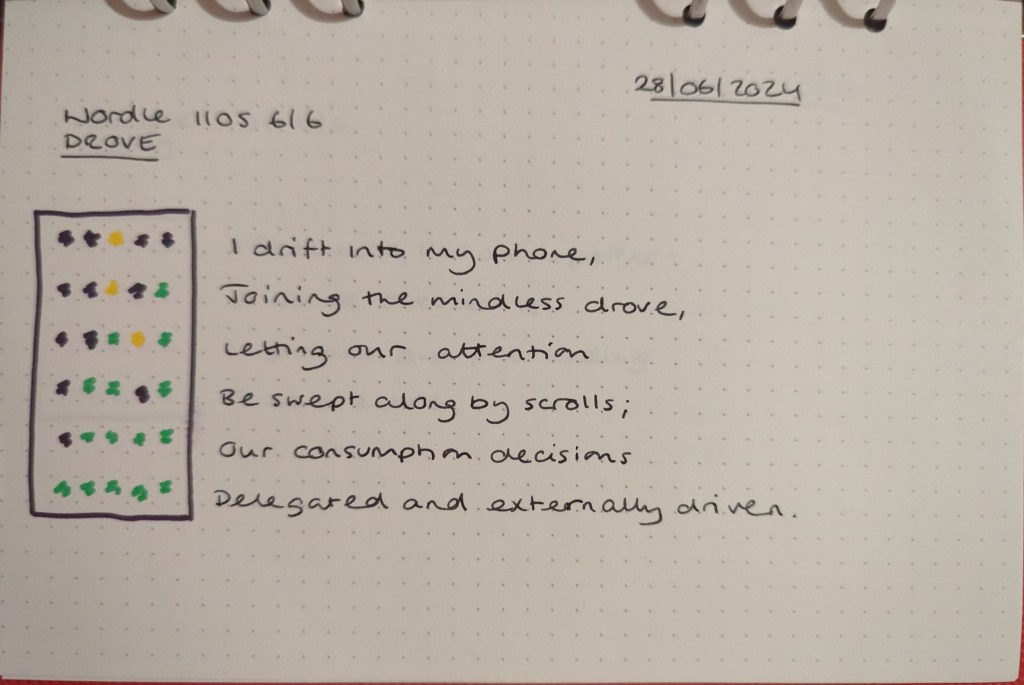 28/06/2024
Wordle 1105 6/6
DROVE
I drift into my phone,
Joining the mindless drove,
Letting our attention
Be swept along by scrolls;
Our consumption decisions
Delegated and externally driven.